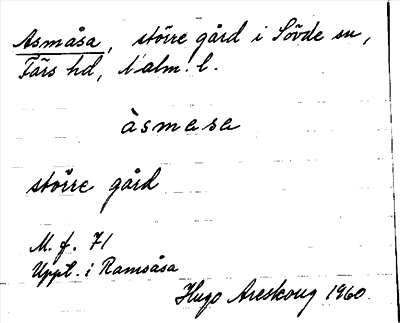 Asmåsa, större gård i Sövde sn,
Färs hd, Malm. l.
àsmasa
större gård
M. f. 71
Uppt. i Ramsåsa
Hugo Areskoug 1960.